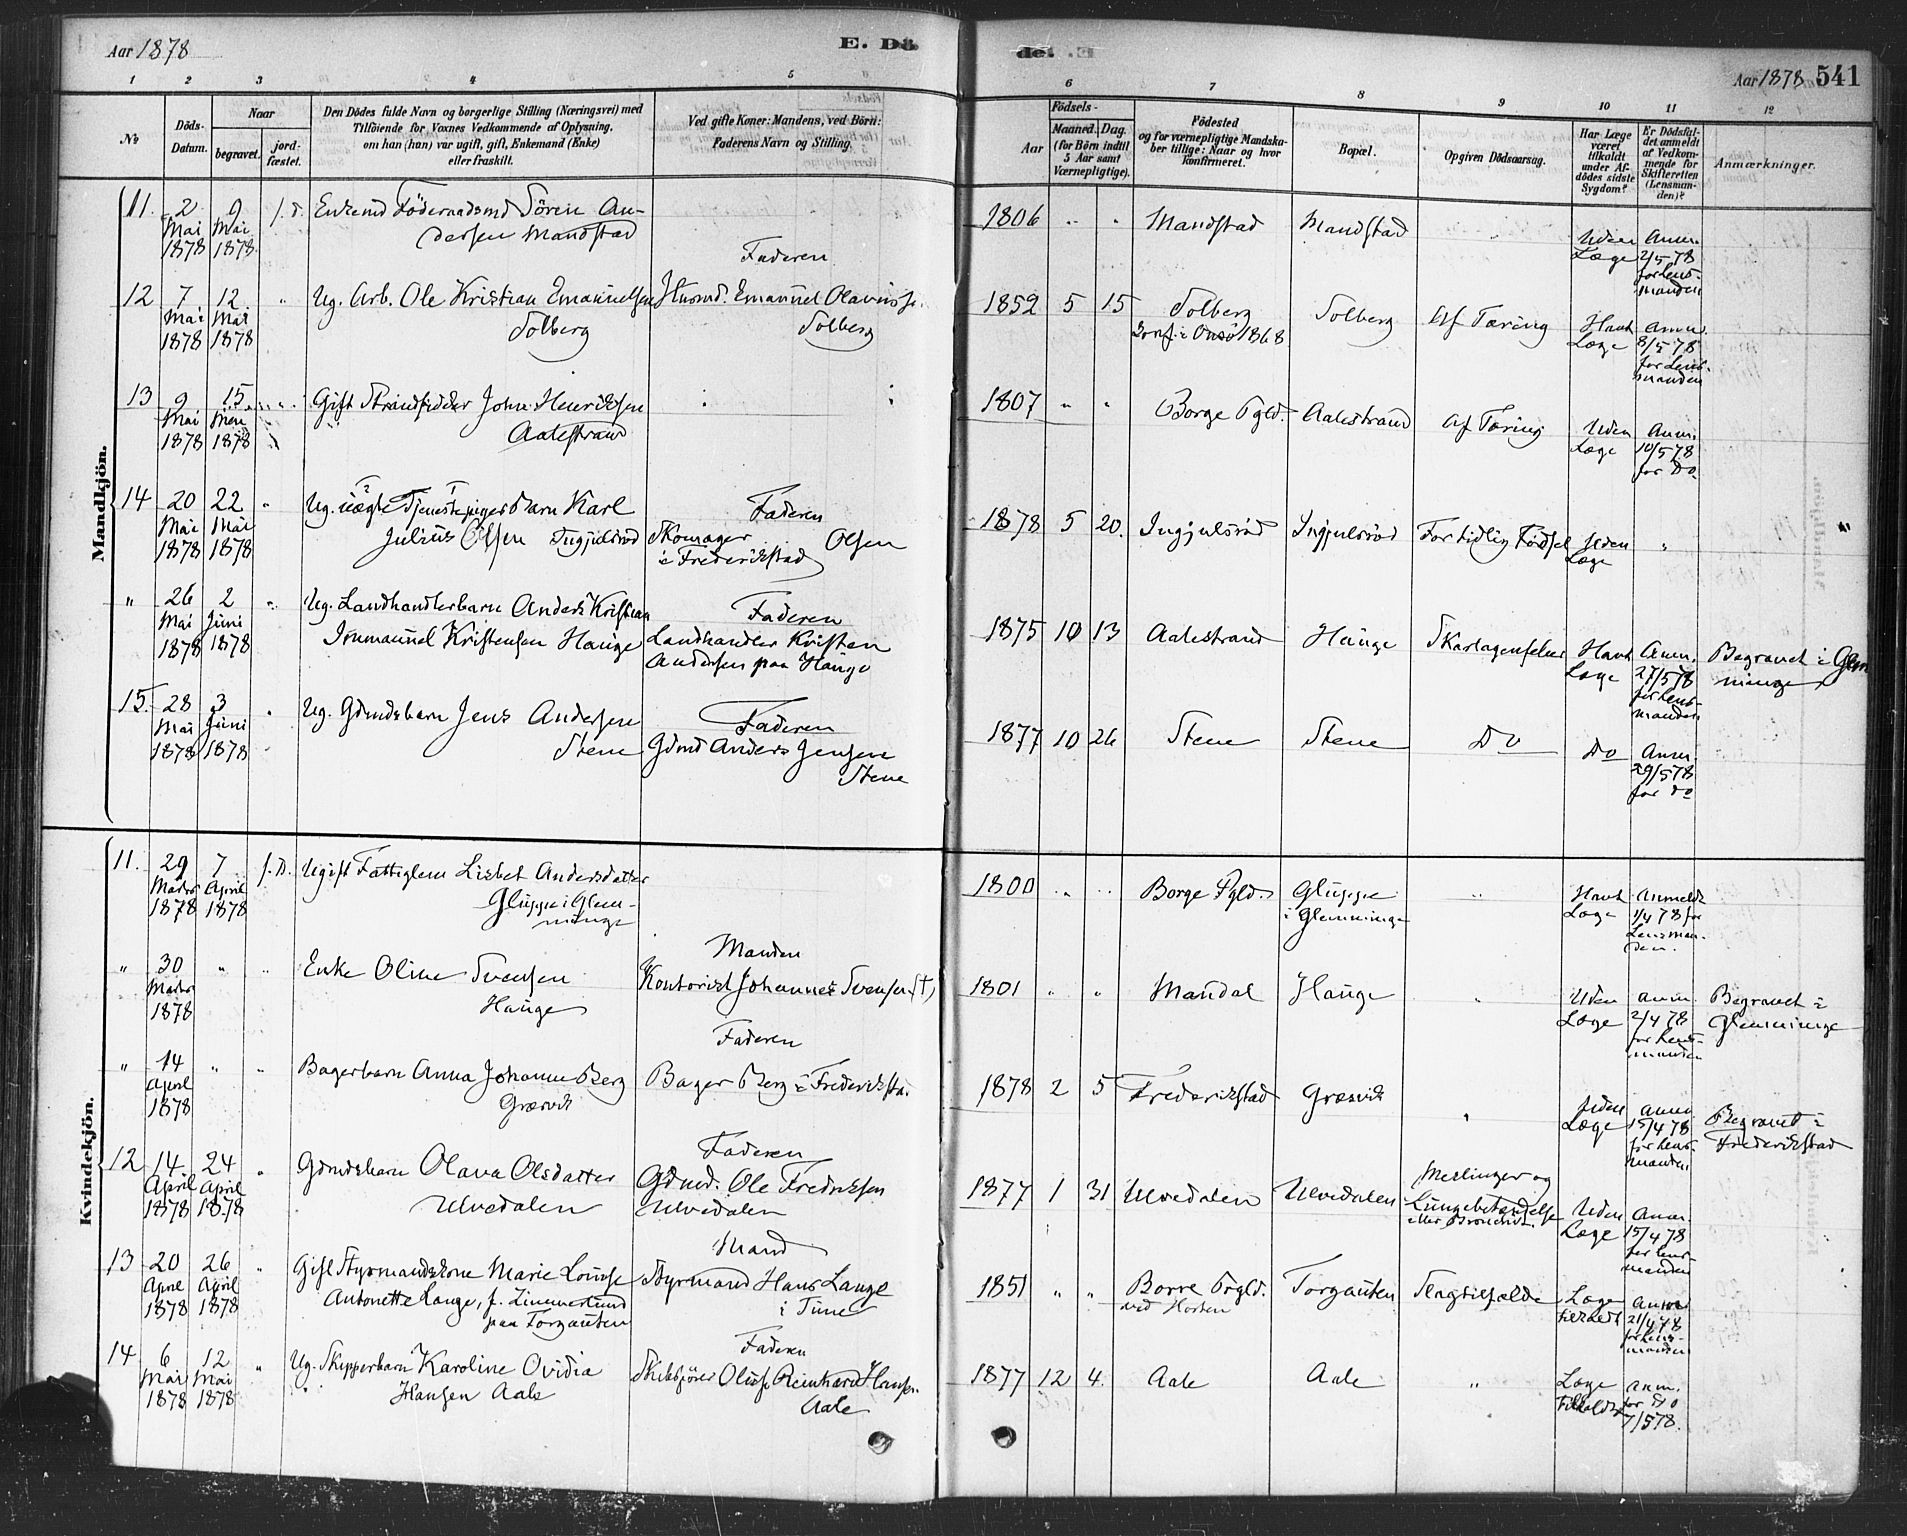 Aar 1878
E. Dö
de. E
Aar 1878 541
1 2 3 4 5 6 7 8 9 10 11 12
No
Döds-Datum.
Naar
begravet.
jord-fæstet.
Den Dödes fulde Navn og borgerlige Stilling (Næringsvei) med
Tilföiende for Voxnes Vedkommende af Oplysning,
om han (hun) var ugift, gift, Enkemand (Enke)
eller fraskilt.
Ved gifte Koner: Mandens, ved Börn:
Faderens Navn og Stilling.
Födsels-
Aar
Maaned. Dag.
(for Börn indtil
5 Aar samt
Værnepligtige).
Födested
og for værnepligtige Mandska-
ber tillige: Naar og hvor
konfirmeret.
Bopæl.
Opgiven Dödsaarsag.
Har Læge
været
tilkaldt
under Af-
dödes sidste
Sygdom?
Er Dödsfal-
det anmeldt
af Vedkom-
mende for
Skifteretten
(Lensman-
den)?
Anmærkninger.
Mandkjön.
11. 2 Mai 1878 9 Mai 1878 f. d. Enkemd Föderaadsmd Sören An-
dersen Mandstad
1806 " " Mandstad Mandstad " Uden Læge Anm. 2/5 78 for Lens-
manden
12 7 Mai 1878 12 Mai 1878 " Ug. Arb. Ole Kristian Emanuelsen
Solberg
Faderen
Husmd. Emanuel Olaviss.
Solberg
1852 5 15 Solberg
Conf. i Onsö 1868
Solberg Af Tæring Havt Læge Anm. 8/5 78 for Lens-
manden
13 9 Mai 1878 15 Mai 1878 " Gift Strandsidder John Henriksen
Aalestrand
1807 " " Borge Pgld. Aalestrand Af Tæring Uden Læge Anm. 10/5 78 for Do
14 20 Mai 1878 22 Mai 1878 " Ug. uægte Tjenestepiges Barn Karl
Julius Olsen Ingjulsröd
Faderen
Skomager Olsen
i Frederikstad
1878 5 20. Ingjulsröd Ingjulsröd For tidlig Födsel Uden Læge " "
" 26 Mai 1878 2 Juni 1878 " Ug. Landhandlerbarn Anders Kristian
Immanuel Kristensen Hauge
Faderen
Landhandler Kristen
Andersen paa Hauge
1875 10 13 Aalestrand Hauge Skarlagensfeber Havt Læge Anm. 27/5 78 for Lens-
manden
Begravet i Glem-
minge
15. 28 Mai 1878 3 Juni 1878 " Ug. Gdmdsbarn Jens Andersen
Stene
Faderen
Gdmd Anders Jensen
Stene
1877 10 26 Stene Stene Do Do Anm. 29/5 78 for do
Kvindekjön.
11. 29 Marts 1878 7 April 1878 f. D. Ugift Fattiglem Lisbet Andersdatter
Gluppe i Glem-
minge
1800 " " Borge Pgld. Gluppe
i Glemminge
" Havt Læge Anmeldt 1/4 78 for
Lensman-
den.
" 30 Marts 1878 " " Enke Oline Svensen
Hauge
Manden
Kontorist Johannes Svensen (†)
1801 " " Mandal Hauge " Uden Læge Anm. 2/4 78 for Lens-
manden
Begravet i
Glemminge
" 14 April 1878 " " Bagerbarn Anna Johanne Berg
Græsvik
Faderen
Bager Berg i Frederiksta.
1878 2 5 Frederikstad Græsvik " Uden Læge Anm. 15/4 78 for Lens-
manden
Begravet i
Frederikstad
12 14 April 1878 24 April 1878 " Gdmdsbarn Olava Olsdatter
Ulvedalen
Faderen
Gdmd. Ole Fredriksen
Ulvedalen
1877 1 31 Ulvedalen Ulvedalen Meslinger og
Lungebetændelse
eller Bronchit.
Uden Læge Anm. 15/4 78 for Lens-
manden
13 20 April 1878 26 April 1878 " Gift Styrmandskone Marie Louise
Antonette Lange, f.
paa Torgauten
Mand
Styrmand Hans Lange
i Tune
1851 " " Borre Prgld.
ved Horten
Torgauten Slagtilfælde Læge tilkaldt Anm. 21/4 78 for Lens-
manden
14 6 Mai 1878 12 Mai 1878 " Ug. Skipperbarn Karoline Ovidia
Hansen Aale
Faderen
Skibsförer Reinhard Hansen.
Aale
1877 12 4. Aale Aale " Læge tilkaldt Anm. for Do
7/5 78.